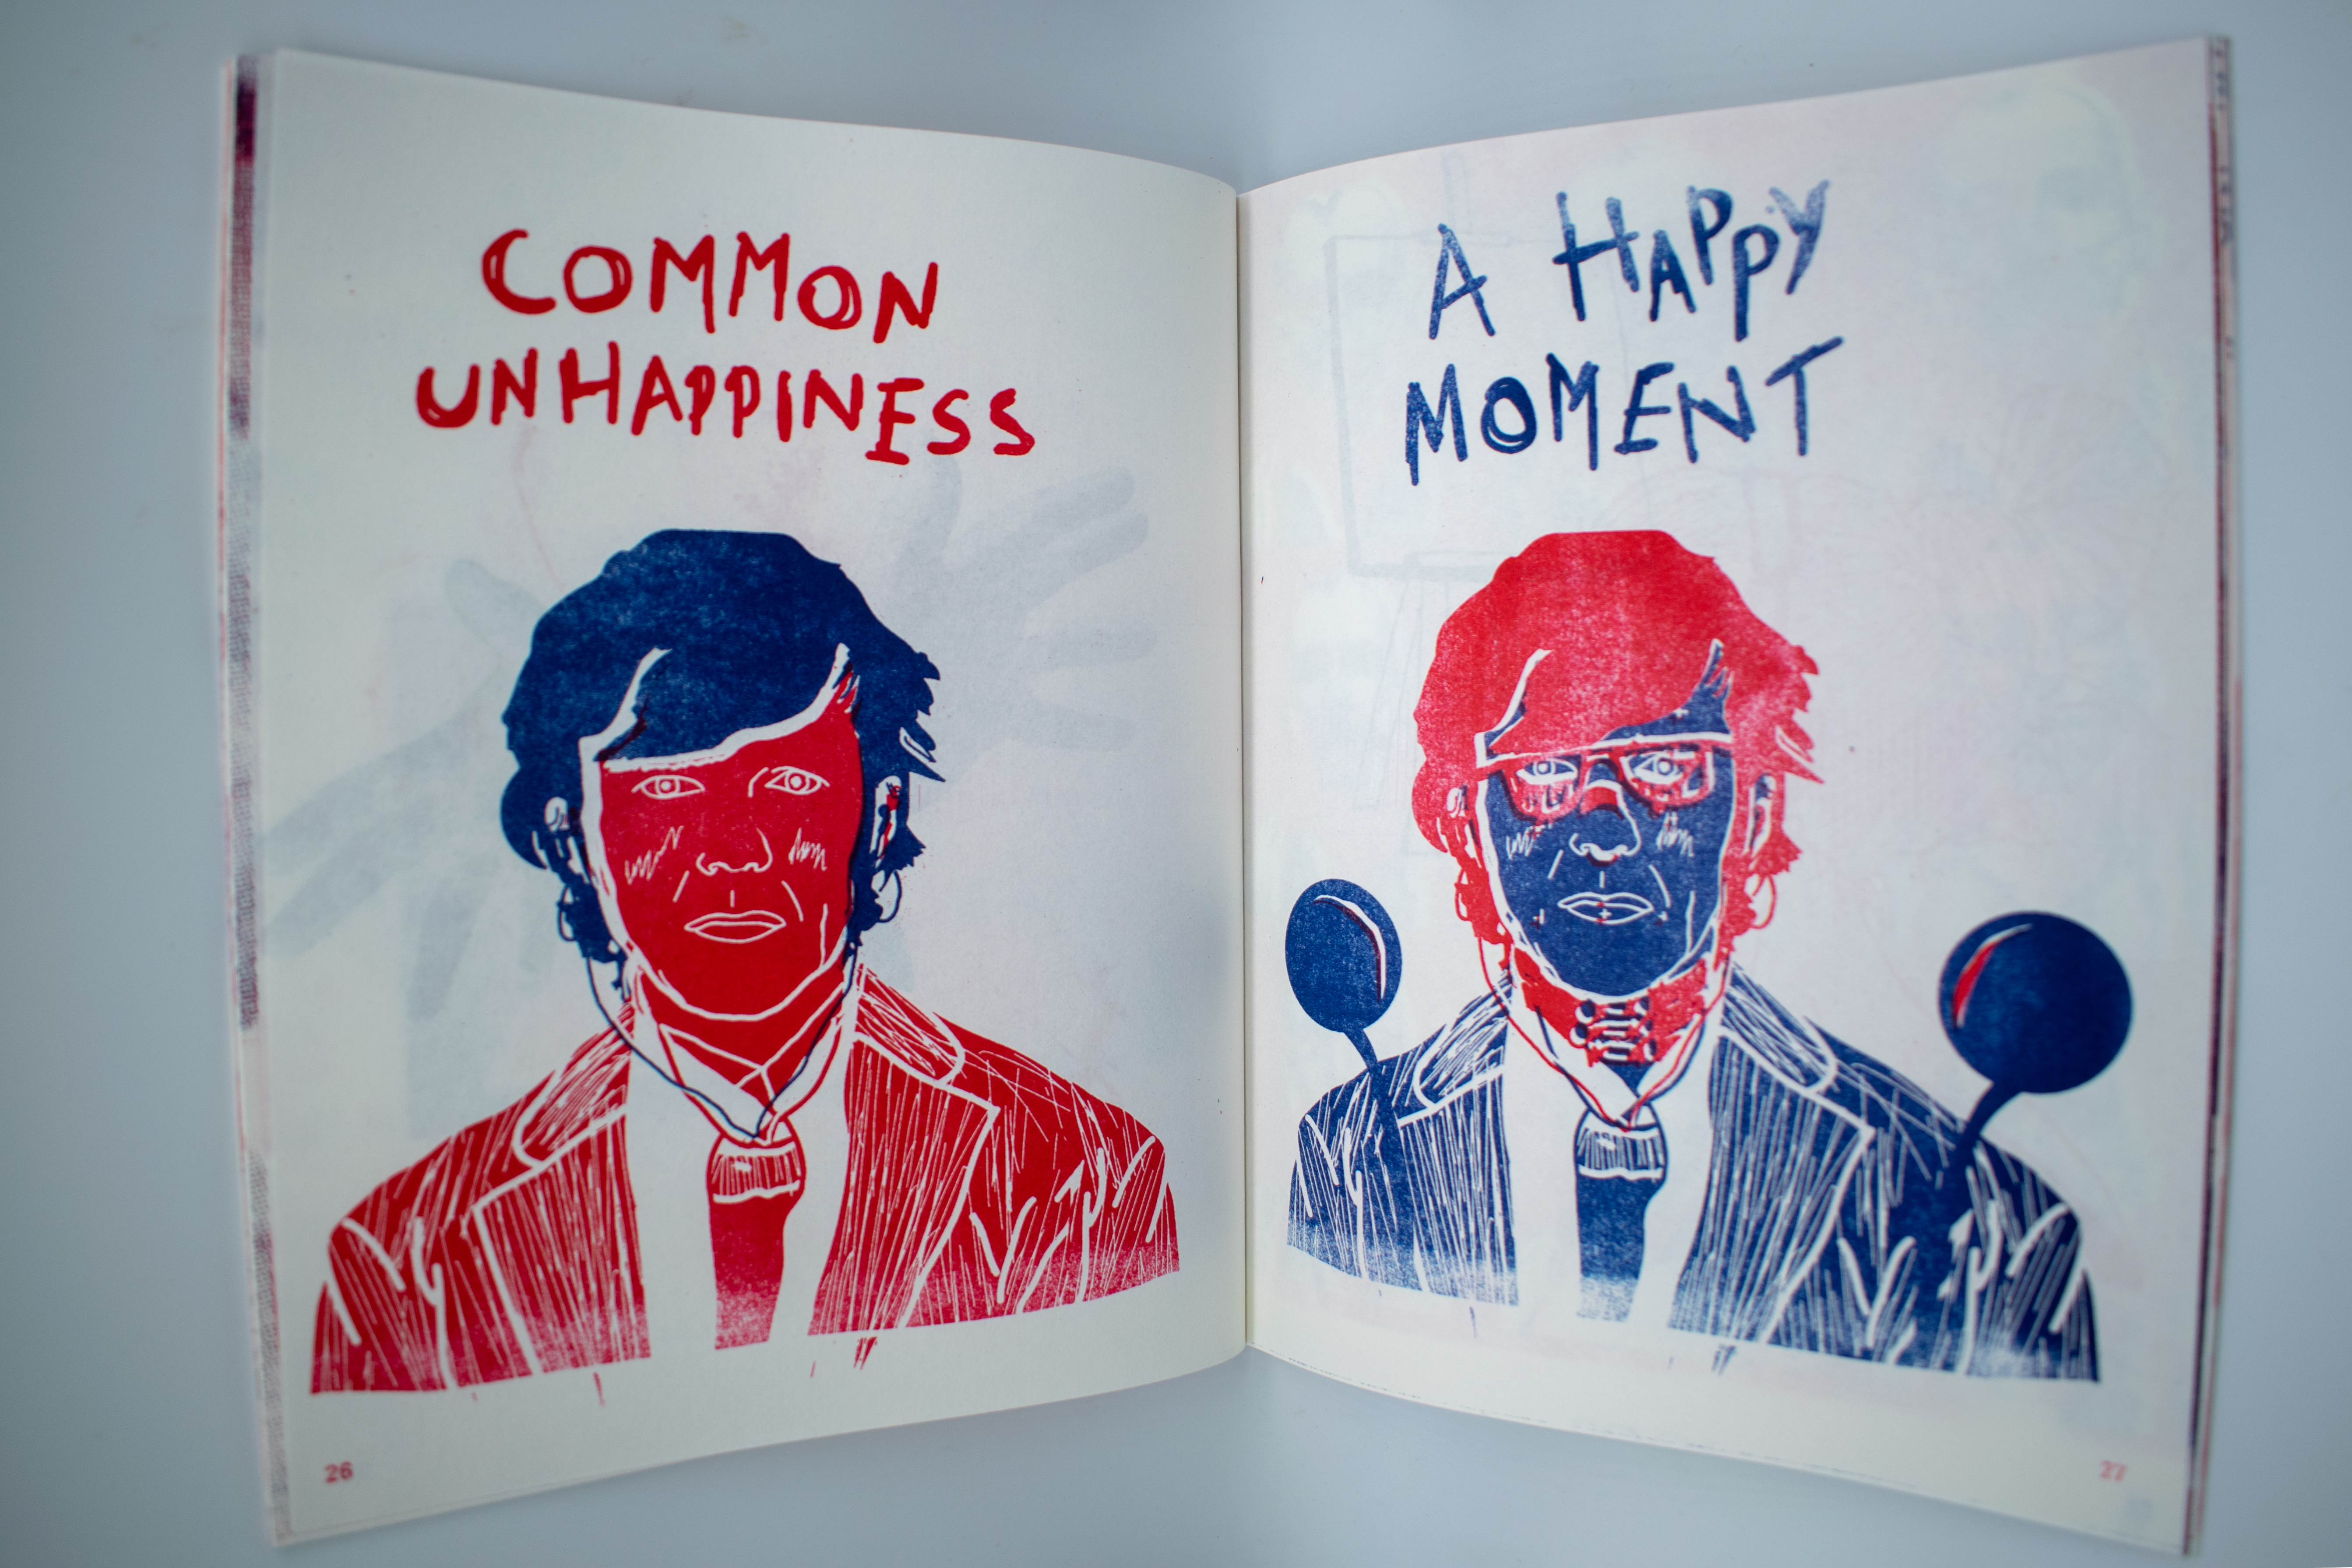 COMMON
UNHAPPINESS
A HAPPY
MOMENT
26
27